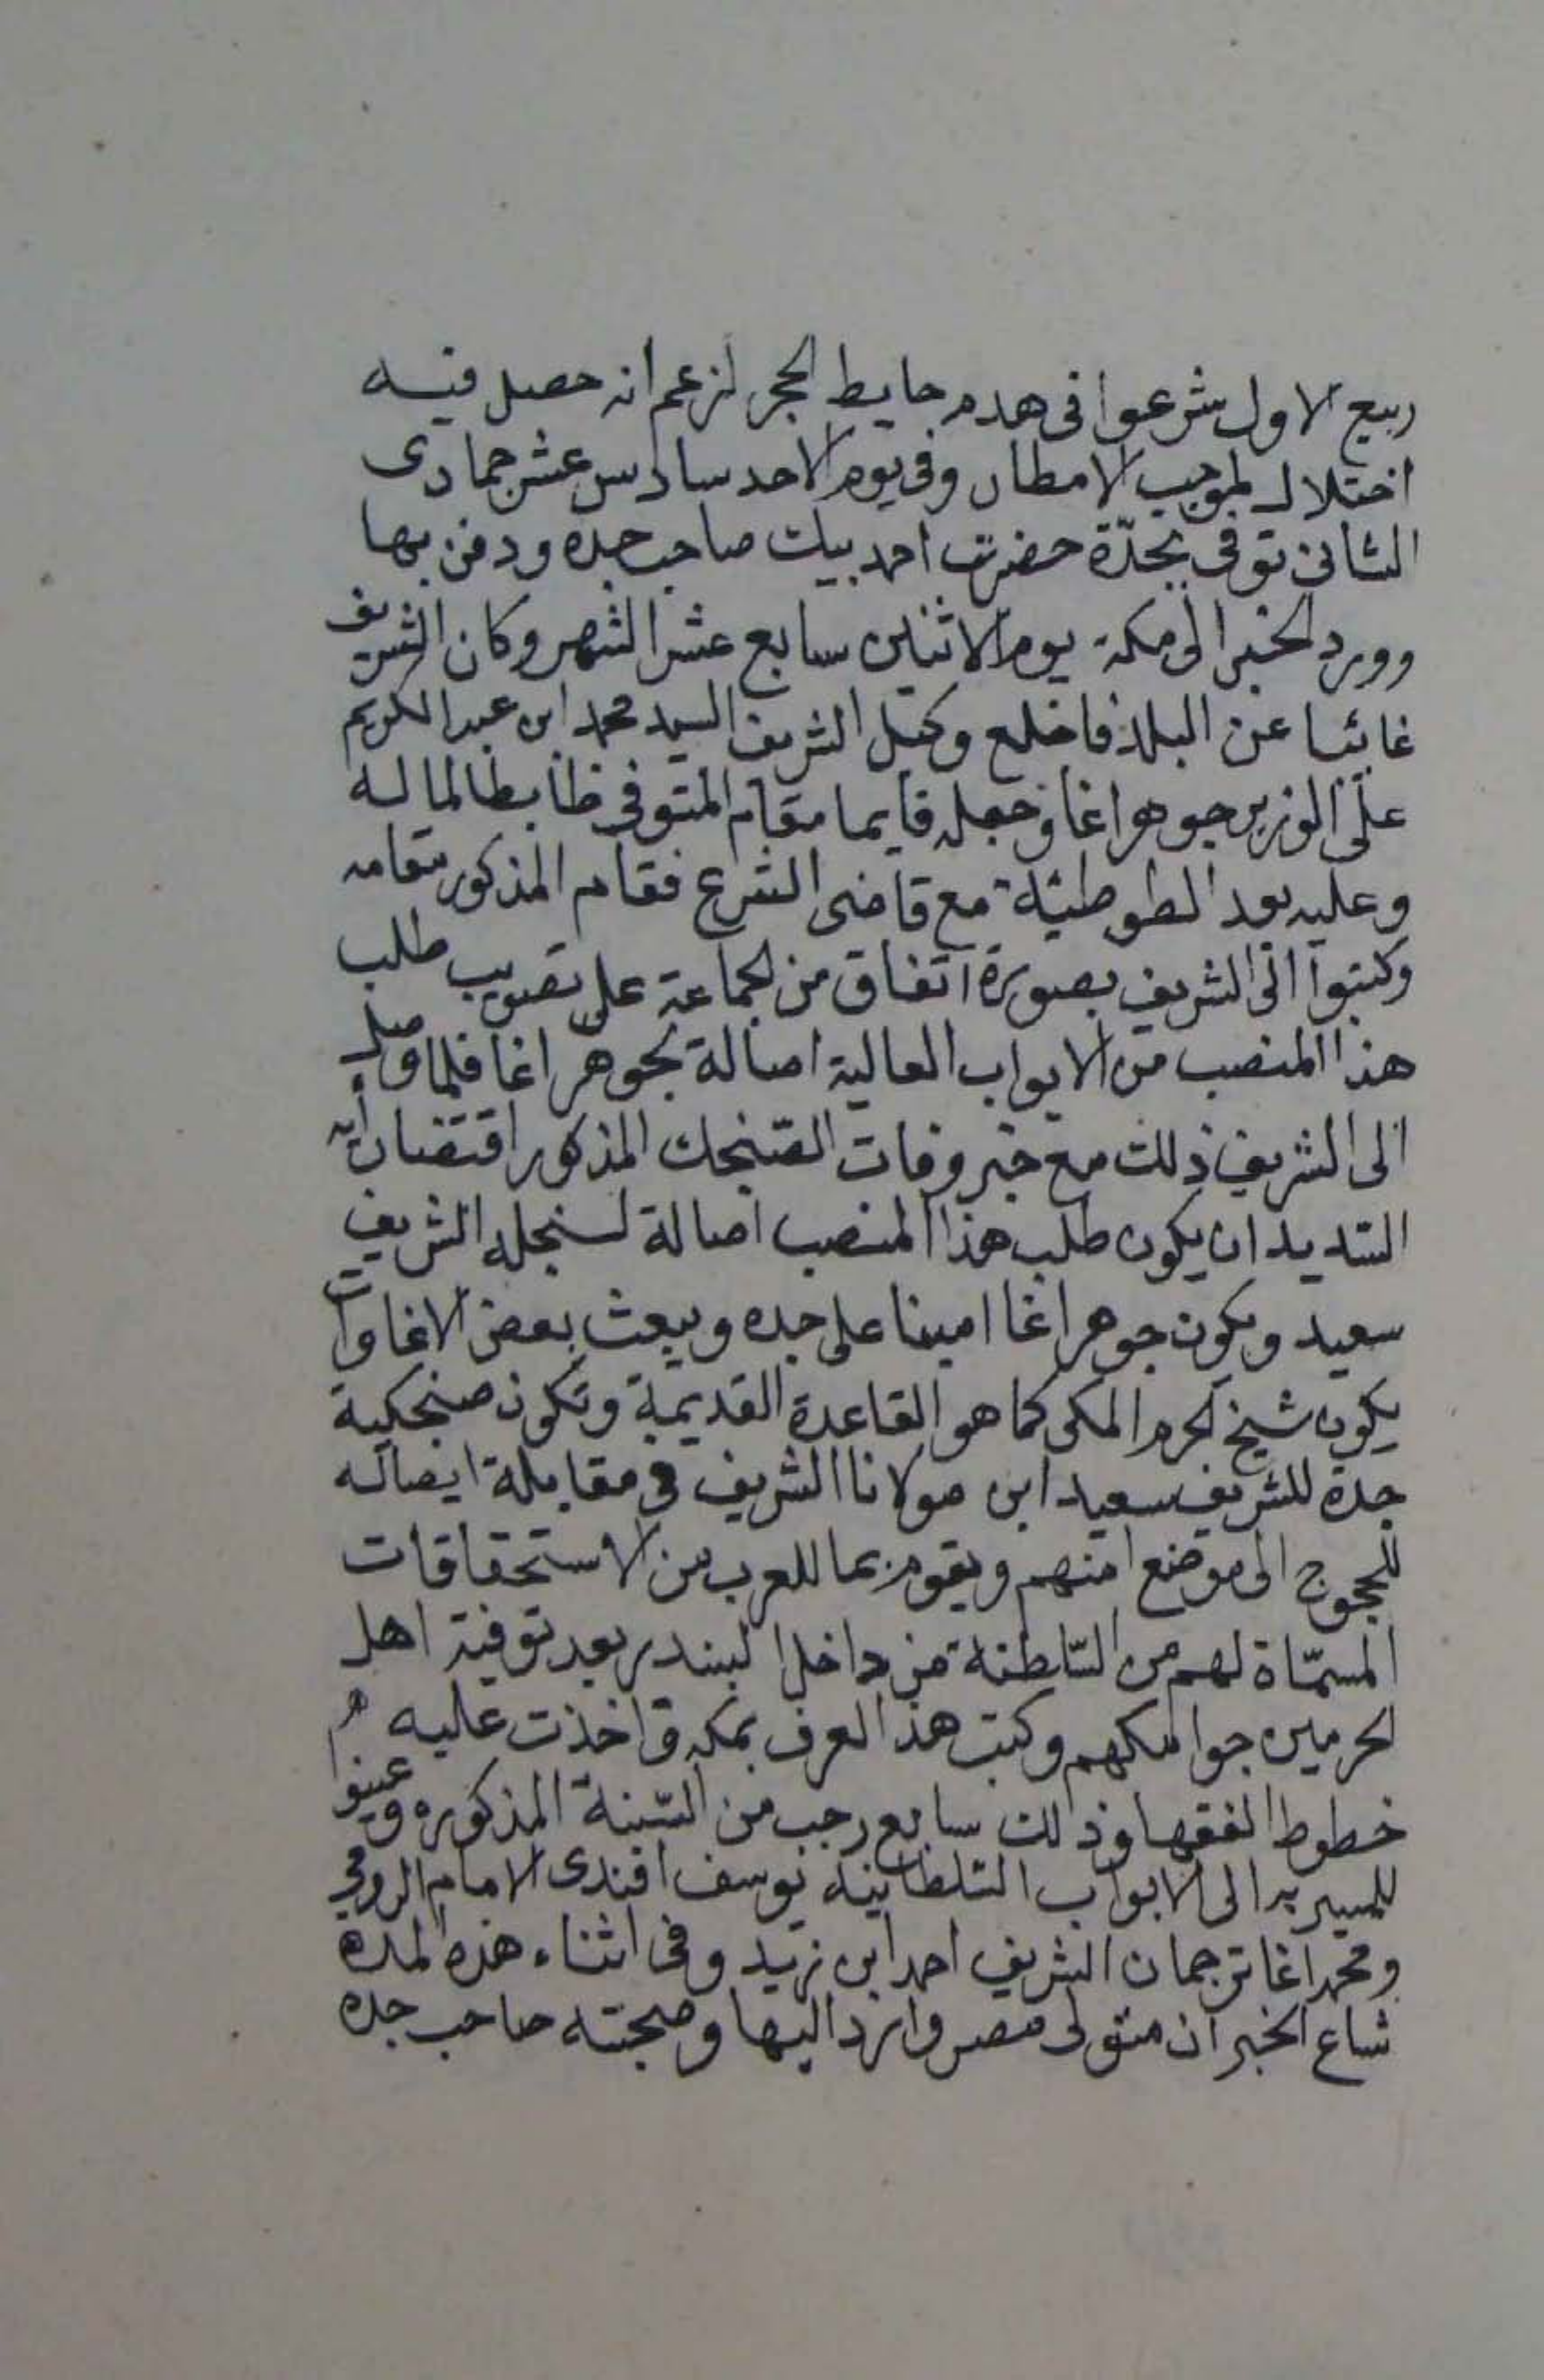 ربيع الاول شرعوا فى هدم حايط الحجر لزعم انه حصل فيه
اختلال لموجب الامطار وفى يوم الاحد سادس عشر جمادى
الثانى توفى بجدّة حضرت احمد بيك صاحب جده ودفن بها
وورد الخبر الى مكة يوم الاثنين سابع عشر الشهر وكان الشريف
غائبا عن البلد فاخلع وكيل الشريف السيد محمد ابن عبد الكريم
على الوزير جوهر اغا وجعله قايما مقام المتوفى ظابطا لماله
وعليه بعد الطوطئة مع قاضى الشرع فقام المذكور مقامه
وكتبوا الى الشريف بصورة اتفاق من الجماعة على تصويب طلب
هذا المنصب من الابواب العالية اصالة لجوهر اغا فلما وصل
الى الشريف ذلك مع خبر وفات الصنجك المذكور اقتضا رأيه
السديد ان يكون طلب هذا المنصب اصالة لسنجله الشريف
سعيد ويكون جوهر اغا امينا على جده ويبعث بعض الاغاوات
يكون شيخ الحرم المكى كما هو القاعدة القديمة وتكون صنجكية
جدة للشريف سعيد ابن مولانا الشريف فى مقابلة ايصاله
للحجوج الى موضع امنهم ويقوم بما للعرب من الاستحقاقات
المسمّاة لهم من السّلطنة من داخل البندر بعد توفية اهل
الحرمين جوامكهم وكتب هذا العرف بمكه واخذت عليه
خطوط الفقها وذلك سابع رجب من السّنة المذكوره وعينوا
للمسير به الى الابواب السّلطانية يوسف افندى الامام الرومى
ومحمد اغا ترجمان الشريف احمد ابن زيد وفى اثناء هذه المده
شاع الخبر ان متولى مصر وارد اليها وصحبته صاحب جده